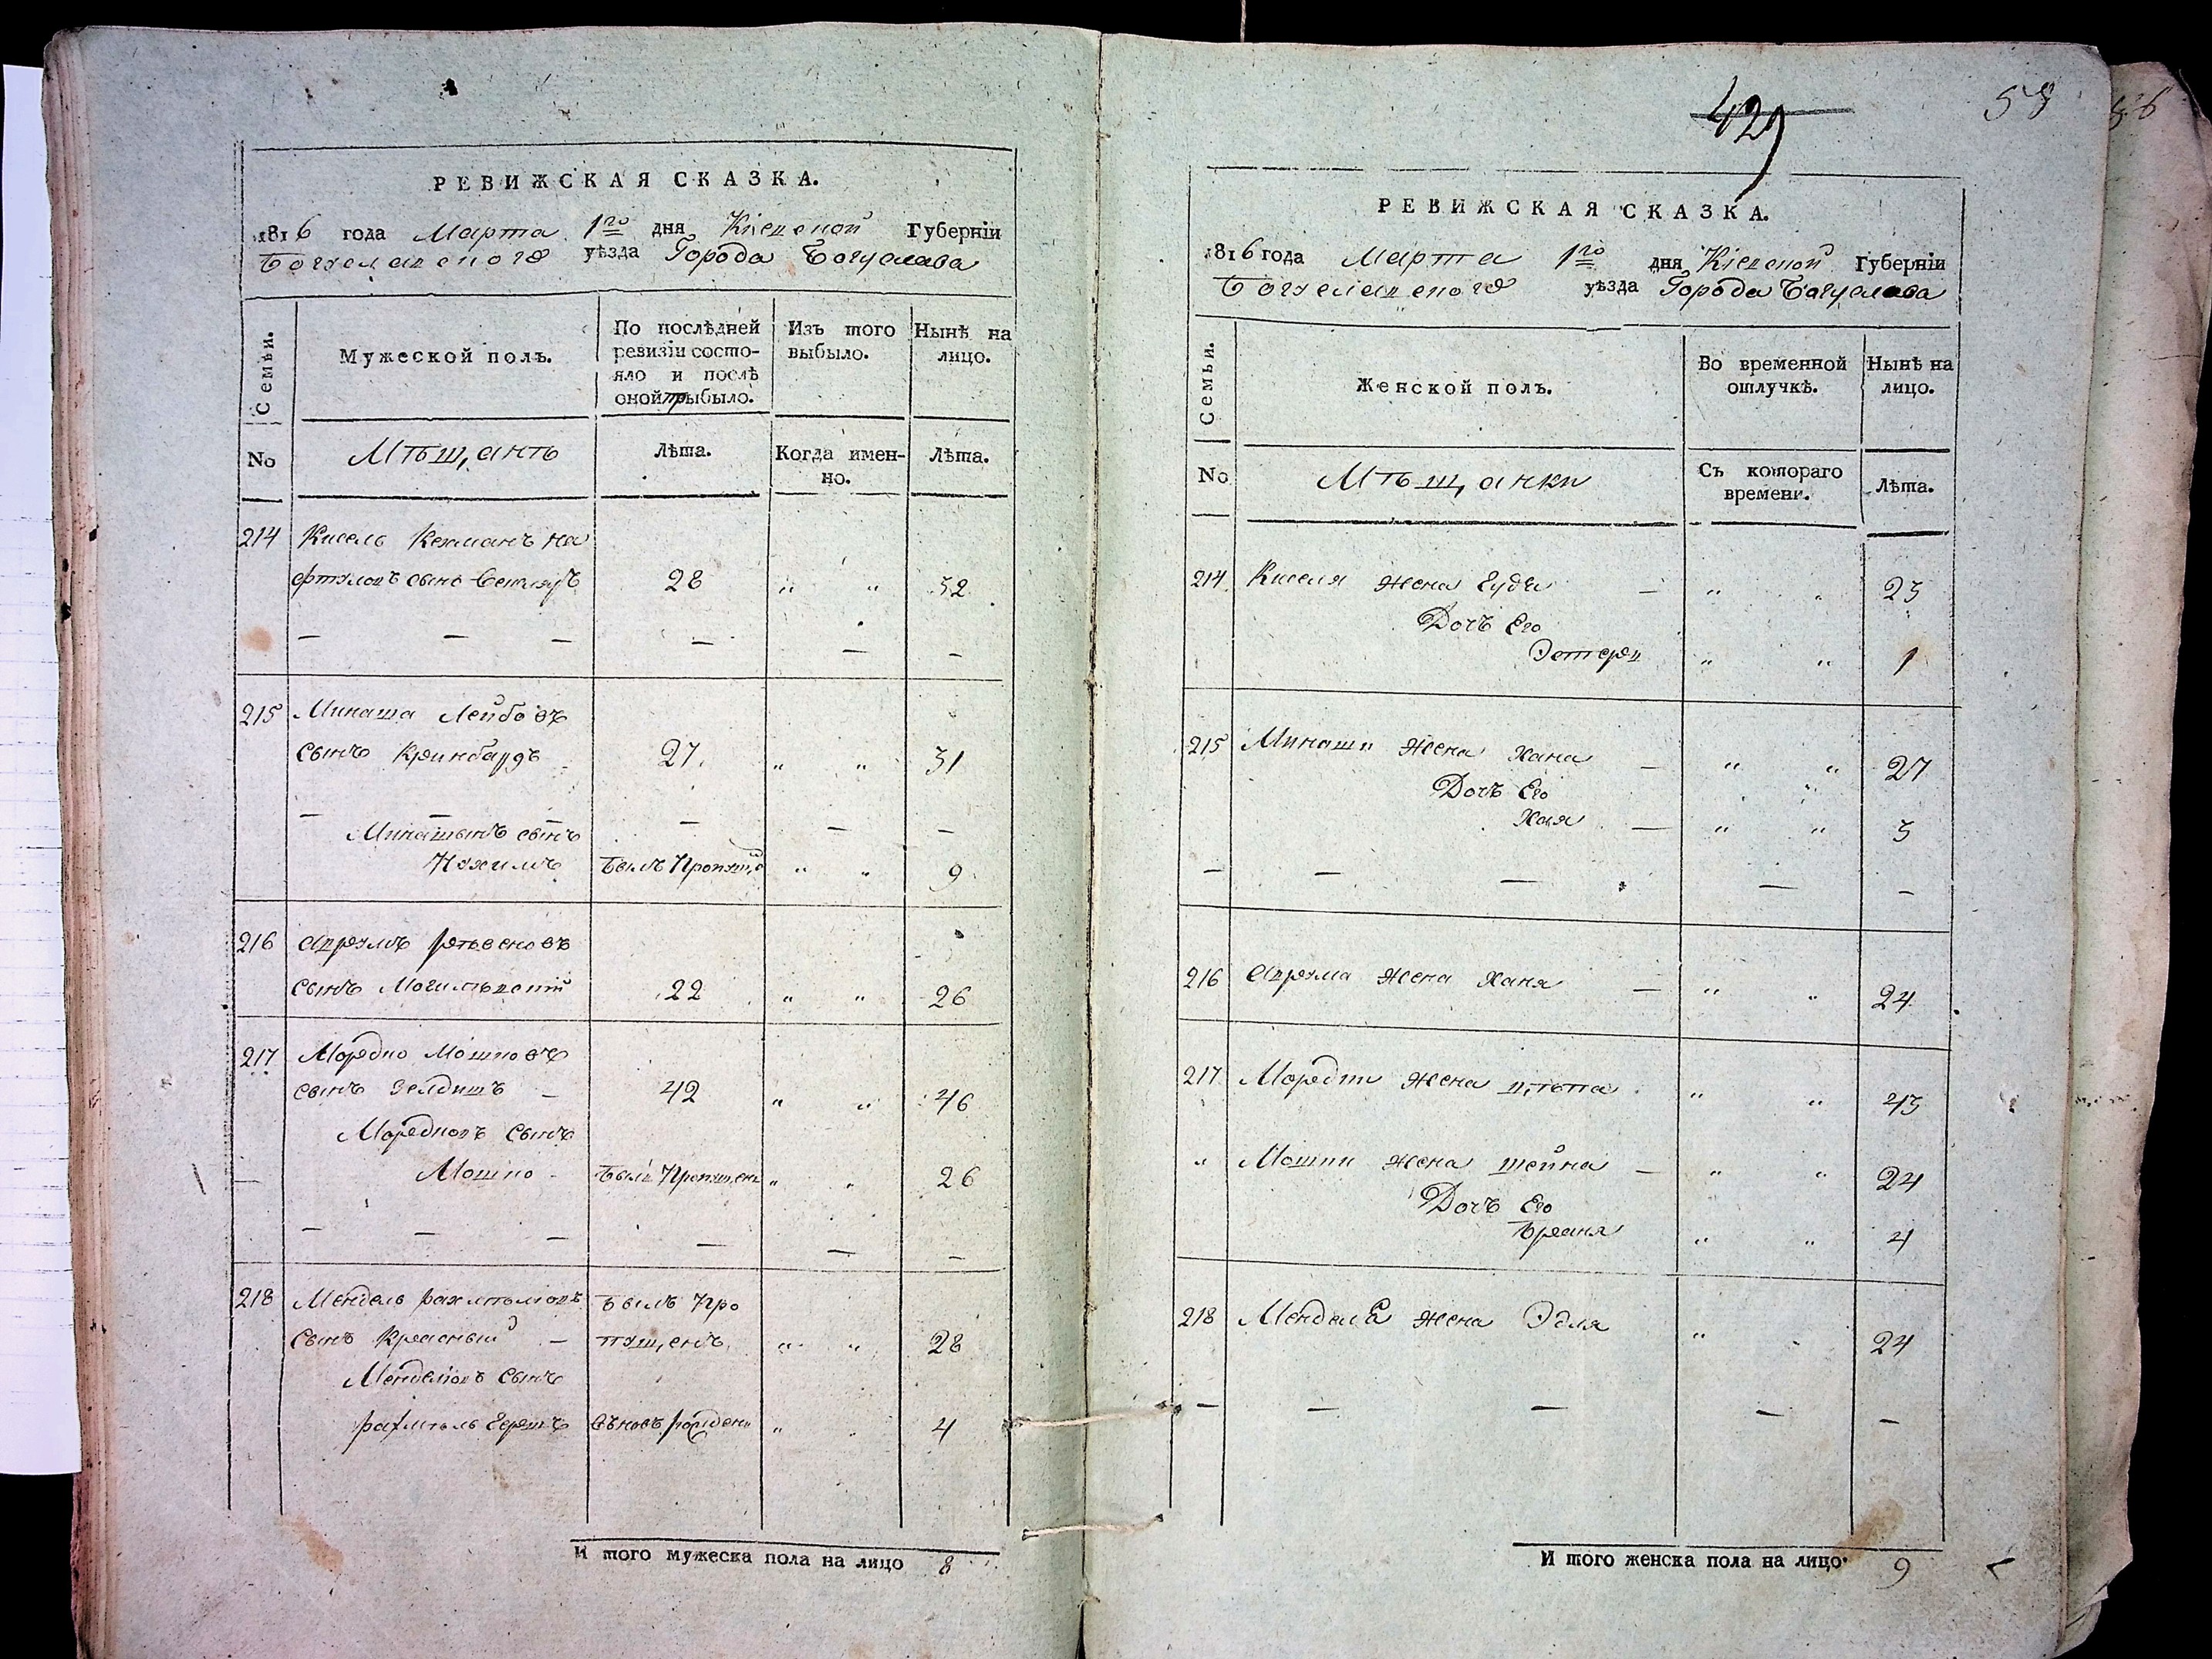 РЕВИЖСКАЯ СКАЗКА.
1816 года Марта 1го дня Кіевской Губерніи
Богуславского уѣзда Города Богуслава
Семьи.
Мужеской полъ.
По послѣдней ревизіи состояло и послѣ оной прыбыло.
Изъ того выбыло.
Нынѣ на лицо.
No
Мѣщанъ
Лѣта.
Когда именно.
Лѣта.
214 Кисель На
сынъ 28 " " 32
215 Минаша Лейбовъ
сынъ 27 " " 31
Минашынъ сынъ
Нохимъ Былъ " " 9
216 Авrумъ
сынъ Могилевскій 22 " " 26
217 Мордко Мошковъ
сынъ Зелдишъ 42 " " 46
Мордковъ сынъ
Мошко Былъ Пропущенъ " " 26
218 Мендель Былъ Про
сынъ Красный пущенъ " " 28
Менделювъ сынъ
Гершъ 4
И того мужеска пола на лицо 8
429
58
РЕВИЖСКАЯ СКАЗКА.
1816 года Марта 1го дня Кіевской Губерніи
Богуславского уѣзда Города Богуслава
Семьи.
Женской полъ.
Во временной отлучкѣ.
Нынѣ на лицо.
No
Мѣщанки
Съ котораго времени.
Лѣта.
214 Киселя жена " " 23
Дочъ Его
Эстеръ " " 1
215 Минаши жена Хана " " 27
Дочъ Его
Хая " " 3
216 Аврума жена Ханя " " 24
217 Мордки жена " " 43
" Мошки жена Шейна " " 24
Дочъ Его
" " 4
218 жена Эдля " " 24
И того женска пола на лицо 9